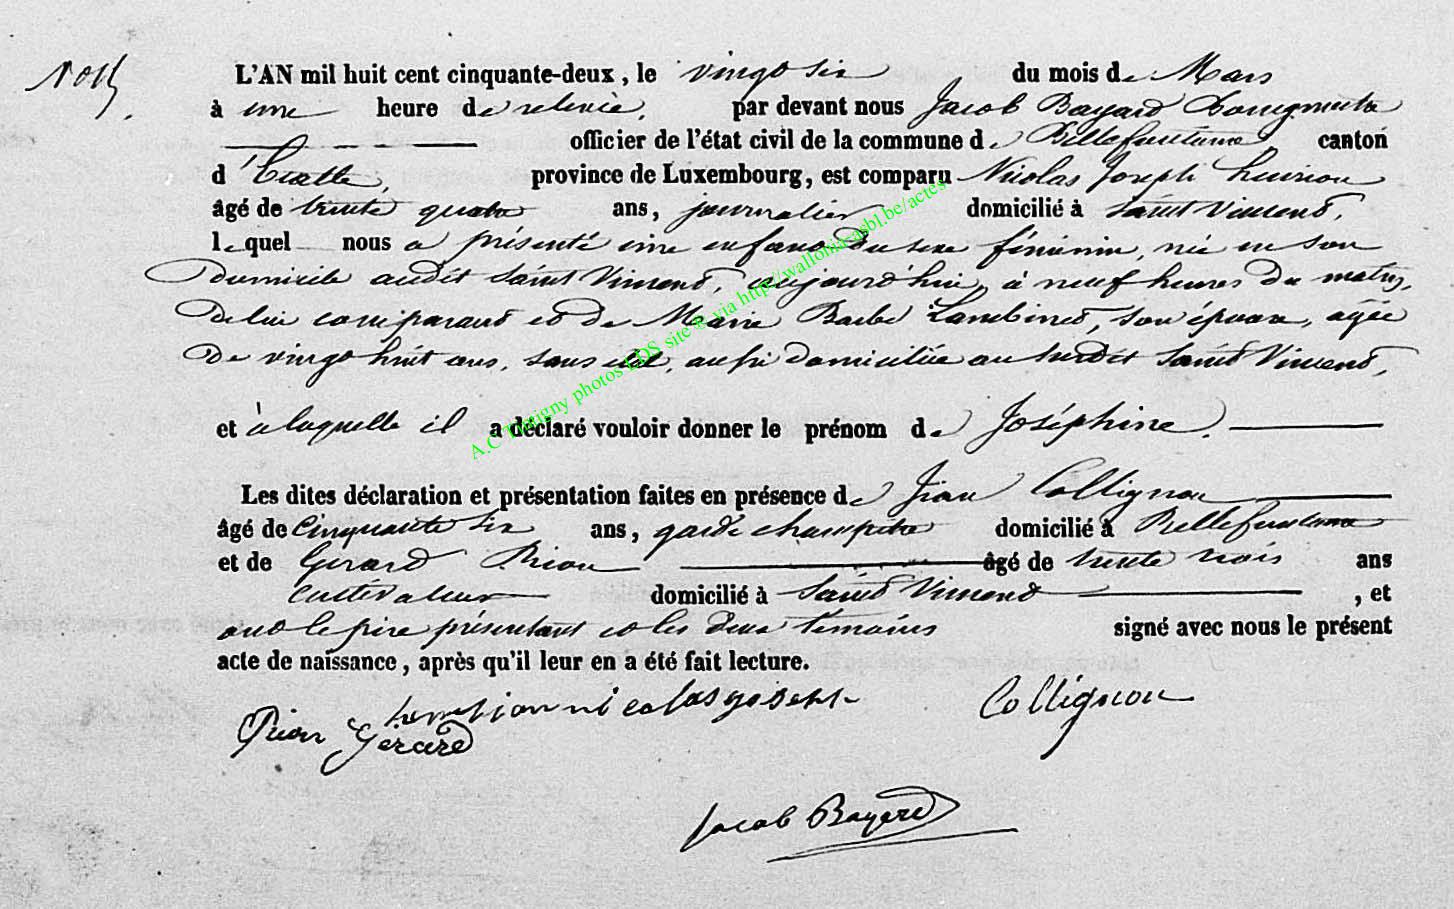 N° 15.
L'AN mil huit cent cinquante-deux, le vingt six du mois de Mars
à une heure de relevée, par devant nous Jacob Bayard Bourgmestre
officier de l'état civil de la commune de Bellefontaine canton
d'Etalle, province de Luxembourg, est comparu Nicolas Joseph
âgé de trente quatre ans, journalier domicilié à Saint Vincent,
lequel nous a présenté une enfant du sexe féminin, née en son
domicile audit Saint Vincent, aujourd'hui, à neuf heures du matin,
de lui comparant et de Marie Barbe Lambinet, son épouse, agée
de vingt huit ans, sans état, aussi domiciliée au susdit Saint Vincent,
et à laquelle il a déclaré vouloir donner le prénom de Joséphine.
Les dites déclaration et présentation faites en présence de Jean Collignon
âgé de Cinquante six ans, garde champêtre domicilié à Bellefontaine
et de Gérard Rion âgé de trente trois ans
cultivateur domicilié à Saint Vincent, et
ont le père présentant et les deux témoins signé avec nous le présent
acte de naissance, après qu'il leur en a été fait lecture.
nicolas joseph Collignon
Rion Gerard
Jacob Bayard
A.C Tintigny photos LDS site © via http://wallonia-asbl.be/actes